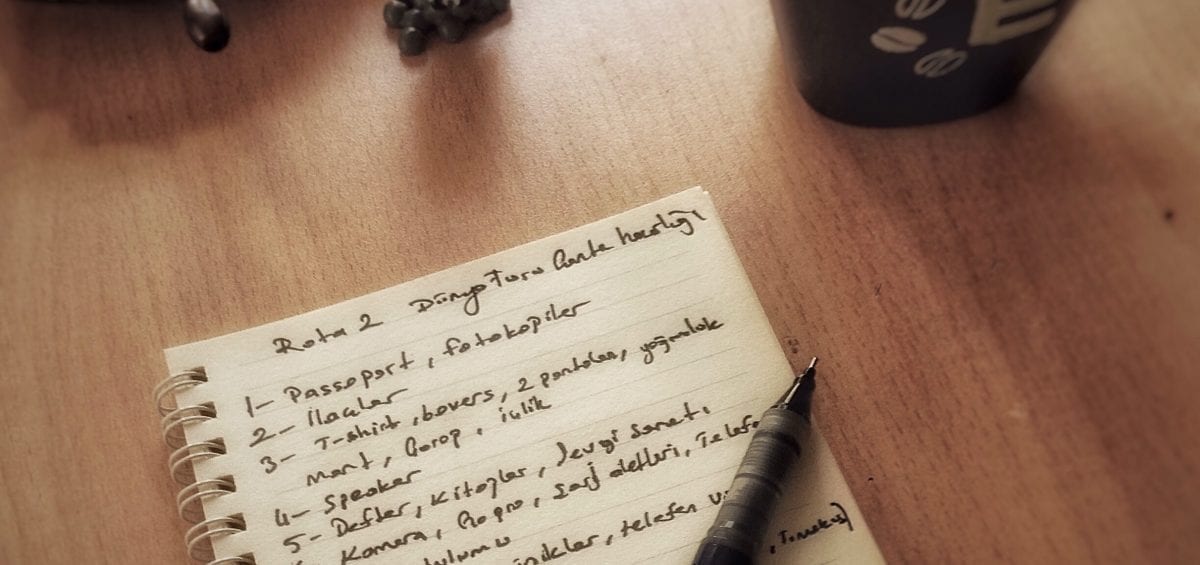 E
Rota 2 Dünya Turu Çanta hazırlığı
1- Passaport, fotokopiler
2- İlaçlar
3- T-shirt, boxers, 2 pantolon, yağmurluk
mont, Çorap, içlik
4- Speaker
5- Defter, Kitaplar, Sevgi Sanatı,
Kamera, Gopro, Şarj aletleri, Telefo
tulumu
telefon